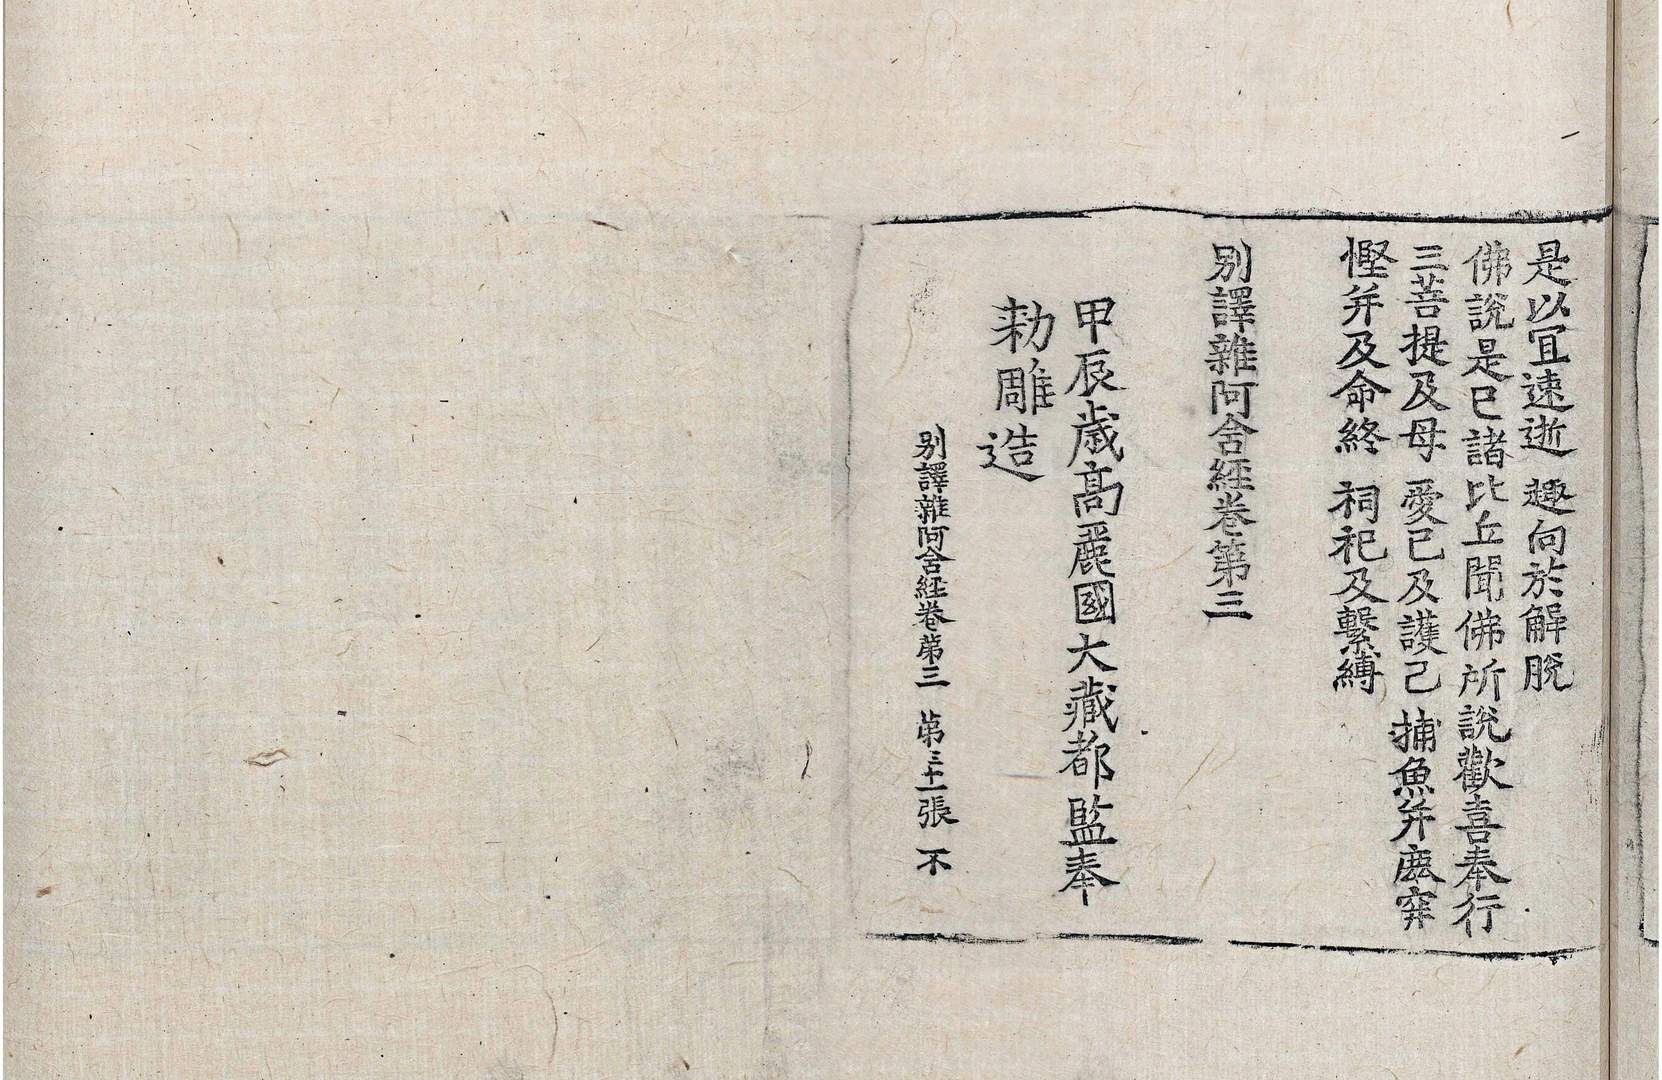 是以宜速逝 趣向於解脫
佛說是已諸比丘聞佛所說歡喜奉行
三菩提及母 愛己及護己 捕魚并鹿穽
慳并及命終 祠祀及繫縛
别譯雜阿含經卷第三
甲辰歲高麗國大藏都監奉
勑雕造
别譯雜阿含經卷第三 第三十一張 不